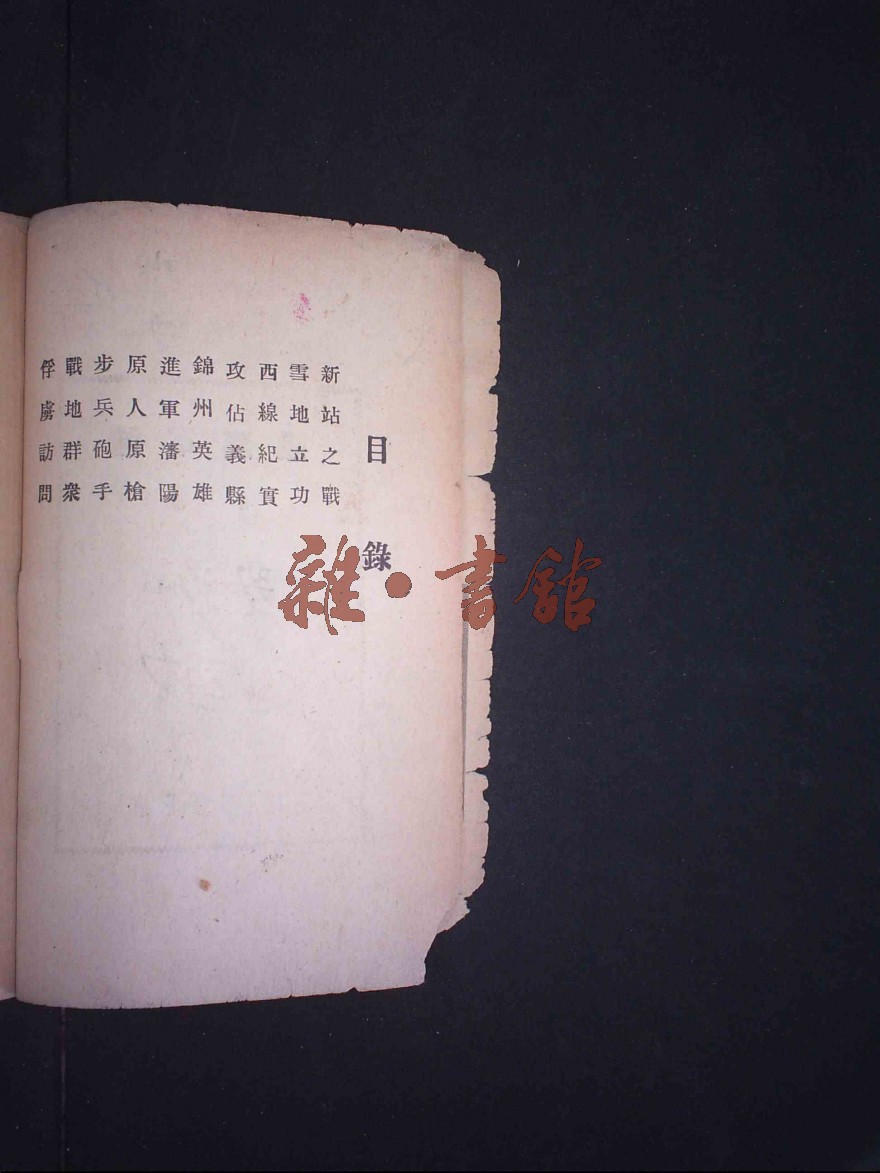 目錄
新站之戰
雪地立功
西線紀實
攻佔義縣
錦州英雄
進軍瀋陽
原人原槍
步兵砲手
戰地群衆
俘虜訪問
雜·書館